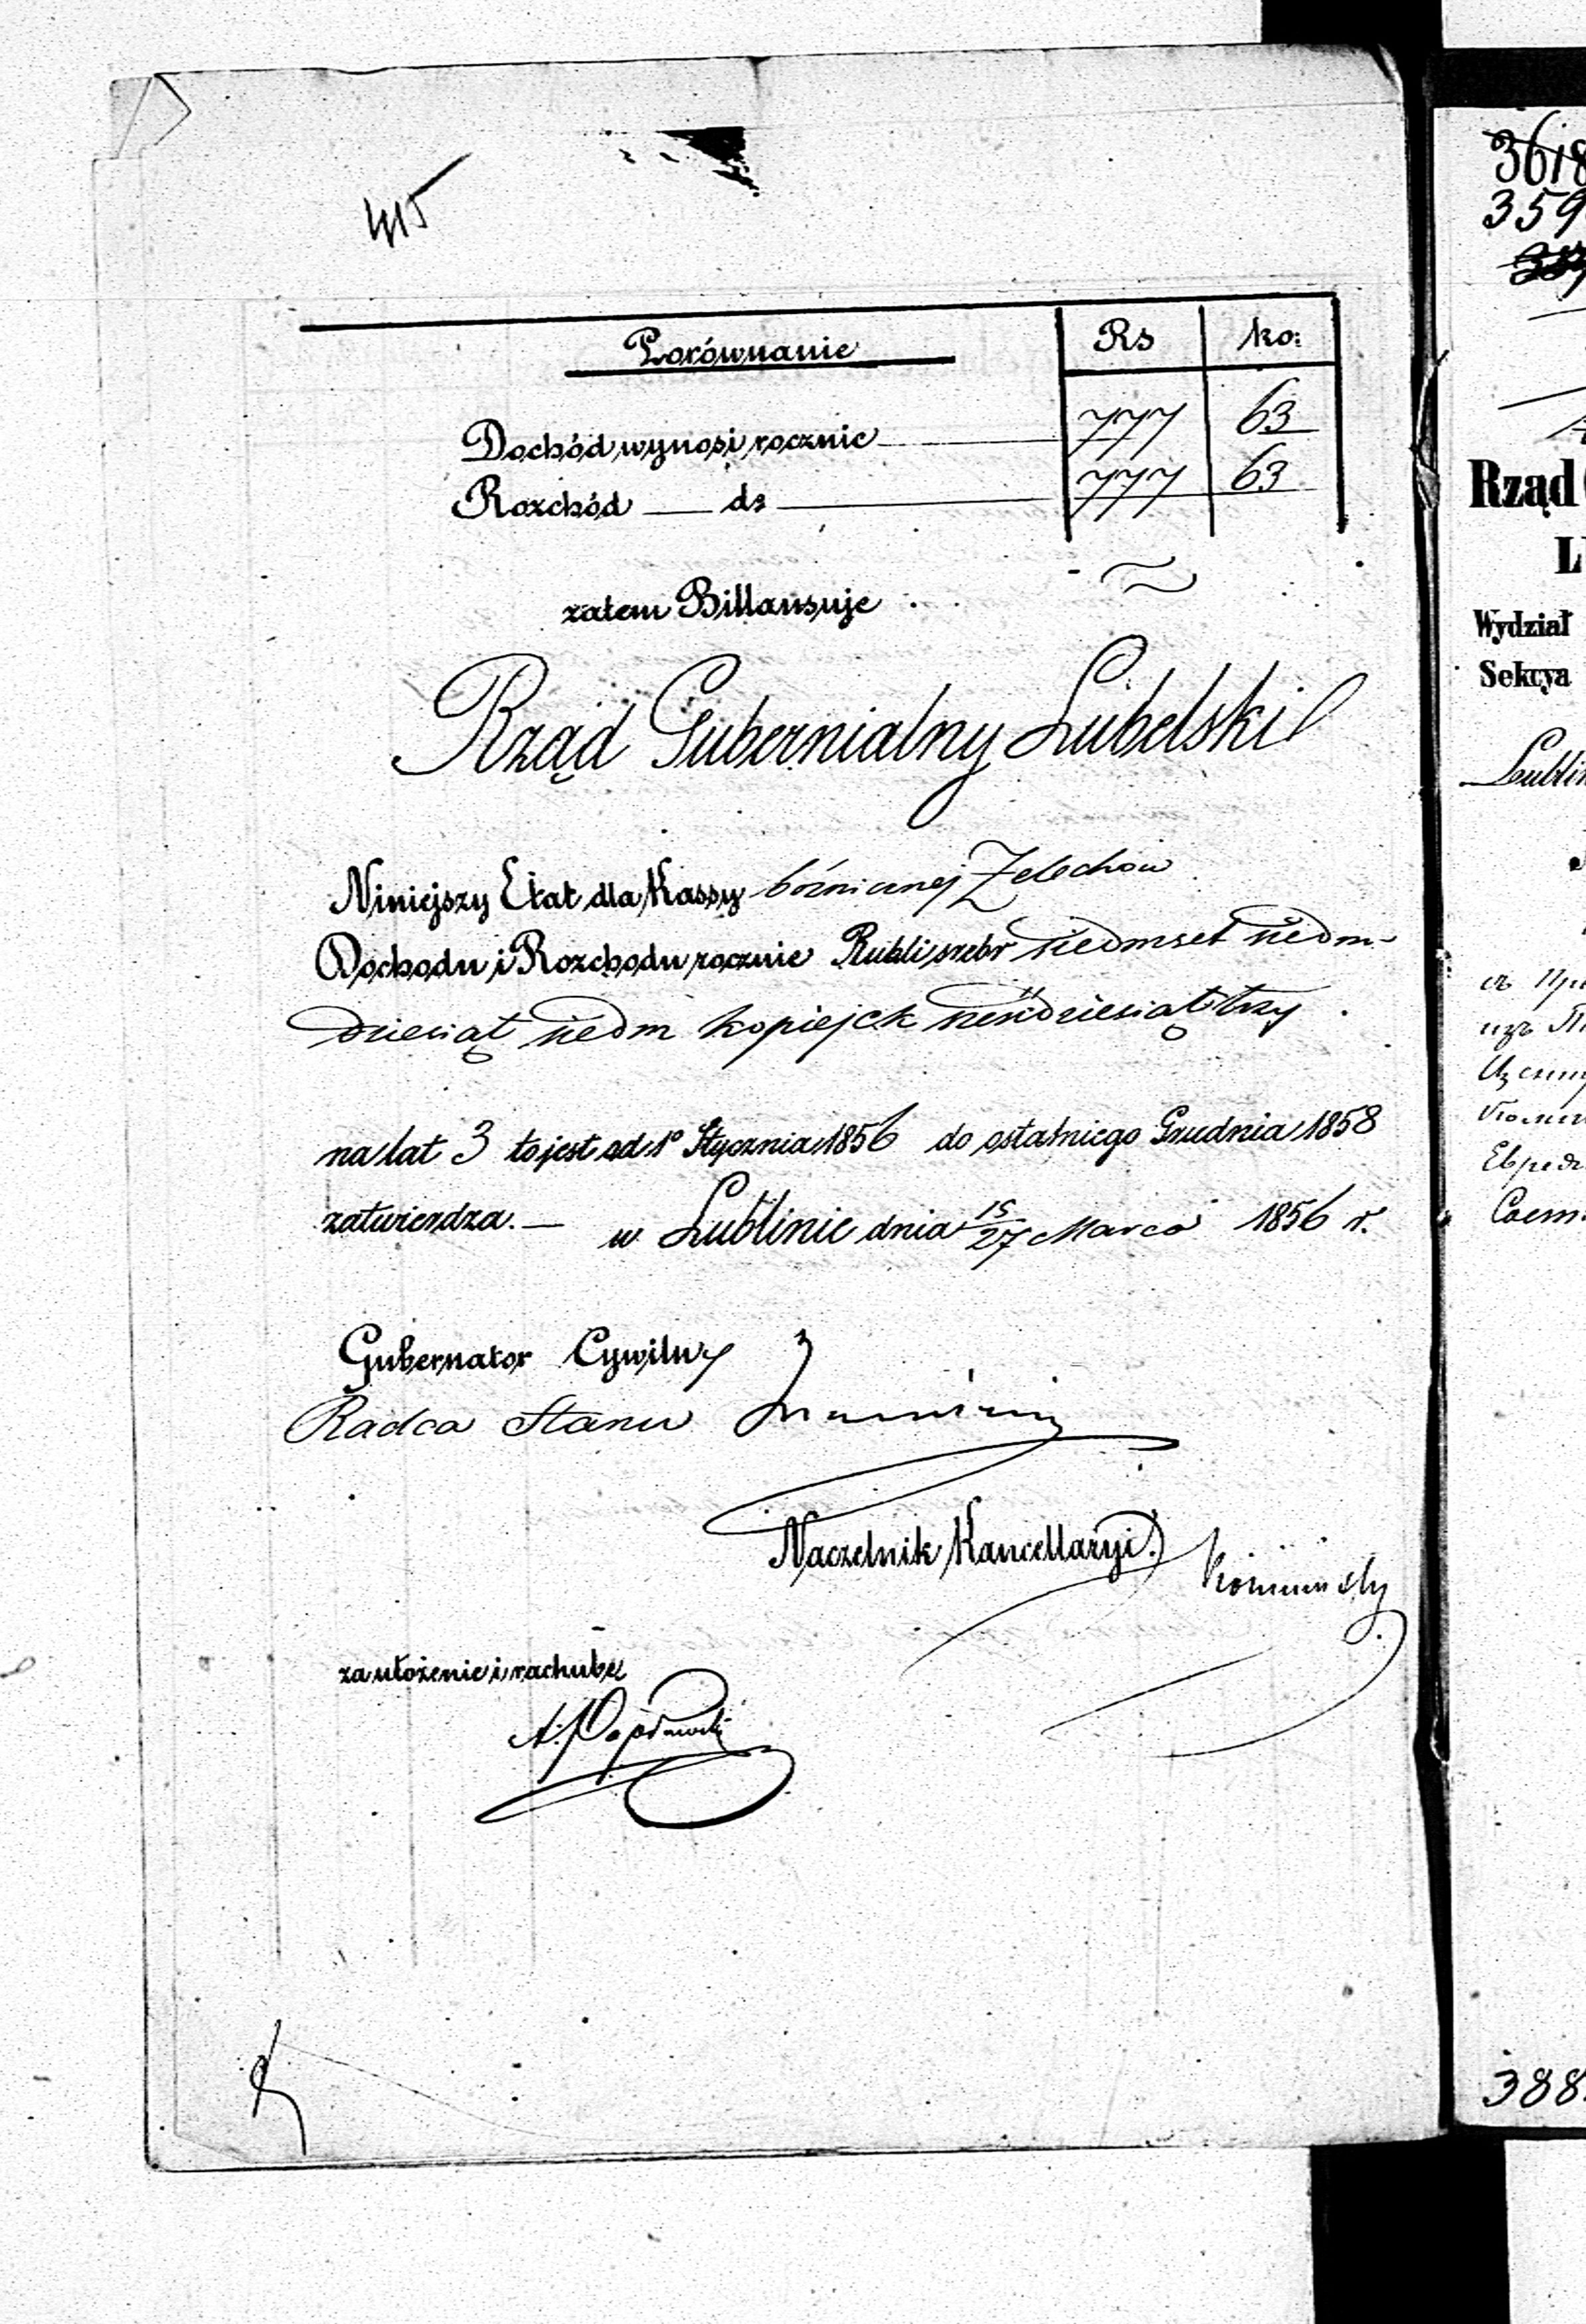 415
Porównanie
Rs ko:
Dochód wynosi rocznie 777 63
Rozchód ds 777 63
zatem Billansuje
Rząd Gubernialny Lubelski
Niniejszy Etat dla Kassy bóżnicznej Żelechow
Dochodu i Rozchodu rocznie Rubli srebr siedmset siedm-
dziesiąt siedm kopiejek sześćdziesiąt trzy
na lat 3 to jest od 1º Stycznia 1856 do ostatniego Grudnia 1858
zatwierdza. — w Lublinie dnia 15/27 Marca 1856 r.
Gubernator Cywilny
Radca Stanu
Naczelnik Kancellaryi
za ułożenie i rachubę
3618
359
Rząd
L
Wydział
Sekcya
Lublin
388